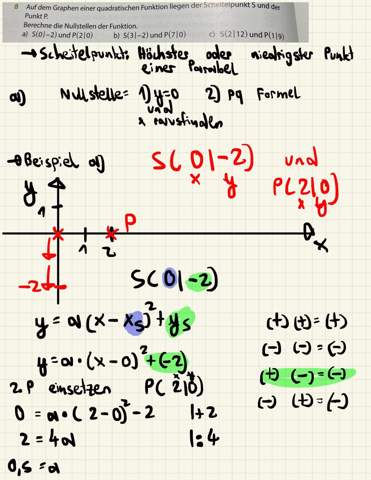 8 Auf dem Graphen einer quadratischen Funktion liegen der Scheitelpunkt S und der
Punkt P.
Berechne die Nullstellen der Funktion.
a) S(0|−2) und P(2|0) b) S(3|−2) und P(7|0) c) S(2|12) und P(1|9)
→ Scheitelpunkt: Höchster oder niedrigster Punkt
einer Parabel
a) Nullstelle = 1) y=0 2) pq Formel
und
x rausfinden
→ Beispiel a) S( 0 | -2) und
x y
P( 2 | 0)
x y
y
1
P
1 2 x
-2
S( 0 | -2)
y = a (x - xs)² + ys
y = a · (x - 0)² + (-2)
2. P einsetzen P( 2 | 0)
x y
0 = a · ( 2 - 0)² - 2 | + 2
2 = 4a | : 4
0,5 = a
(+) (+) = (+)
(-) (-) = (-)
(+) (-) = (-)
(-) (+) = (-)